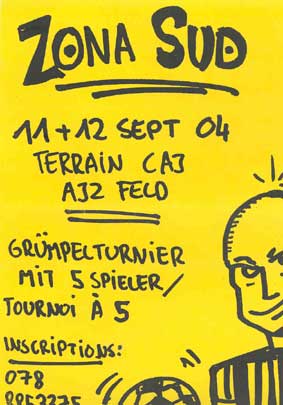 ZONA SUD
11 + 12 SEPT 04
TERRAIN CAJ
AJZ FELD
GRÜMPELTURNIER
MIT 5 SPIELER/
TOURNOI À 5
INSCRIPTIONS:
078